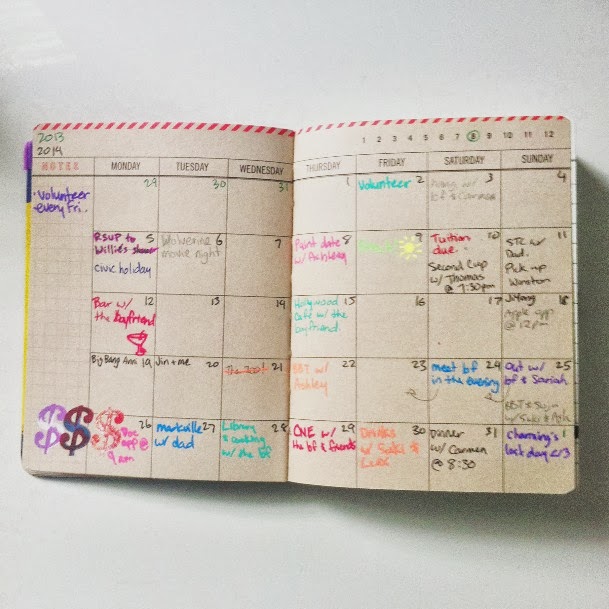 2013
2014
1 2 3 4 5 6 7 8 9 10 11 12
NOTES
MONDAY TUESDAY WEDNESDAY THURSDAY FRIDAY SATURDAY SUNDAY
· Volunteer
every Fri.
29
30
31
1
Volunteer 2
3
bf &
4
RSVP to 5
Willie's shower
civic holiday
Wolverine 6
movie night
7
Paint date 8
w/ Ashley
9
Tuition 10
due.
Second Cup
w/ Thomas
@ 7:30pm
STC w/ 11
Dad.
Pick up
Winston
Bar w/ 12
the boyfriend
13
14
Hollywood 15
Café w/ the
boyfriend.
16
17
JiYong 18
Apple app
@ 12pm
Big Bang Anni 19
Jin + me 20
The Zoo! 21
BBT w/ 22
Ashley
23
meet bf 24
in the evening
Out w/ 25
bf & Sariah
BBT & Sushi
w/
$$$
26
app @
9 am
markville 27
w/ dad
Library 28
& cooking
w/ the bf
CNE w/ 29
the bf & friends
Drinks 30
w/
Dinner 31
w/ Carmen
@ 8:30
Charming's 1
last day